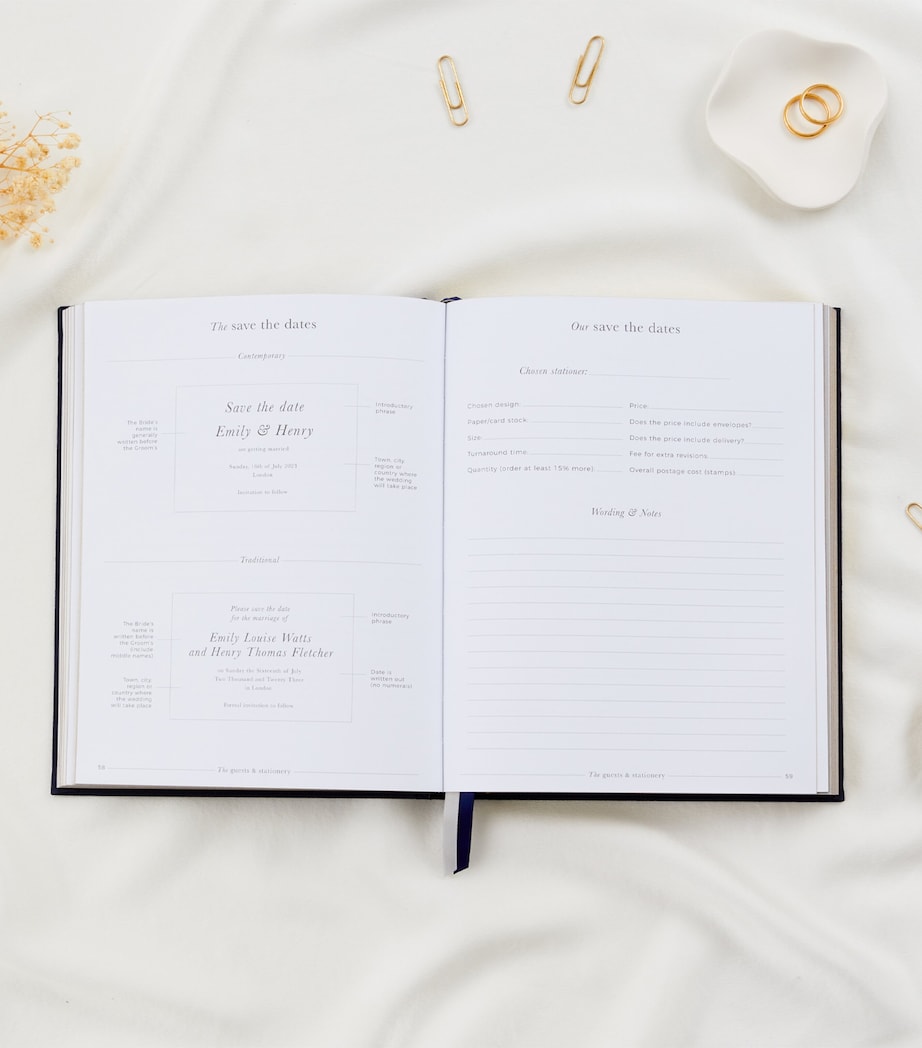 The save the dates
Contemporary
Save the date
Emily & Henry
are getting married
Sunday, 16th of July 2023
London
Invitation to follow
The Bride's
name is
generally
written before
the Groom's
Introductory
phrase
Town, city
region or
country where
the wedding
will take place
Traditional
Please save the date
for the marriage of
Emily Louise Watts
and Henry Thomas Fletcher
on Sunday the Sixteenth of July
Two Thousand and Twenty Three
in London
Formal invitation to follow
The Bride's
name is
written before
the Groom's
(include
middle names)
Town, city
region or
country where
the wedding
will take place
Introductory
phrase
Date is
written out
(no numerals)
58
The guests & stationery
Our save the dates
Chosen stationer:
Chosen design:
Paper/card stock:
Size:
Turnaround time:
Quantity (order at least 15% more):
Price:
Does the price include envelopes?
Does the price include delivery?
Fee for extra revisions:
Overall postage cost (stamps):
Wording & Notes
The guests & stationery
59